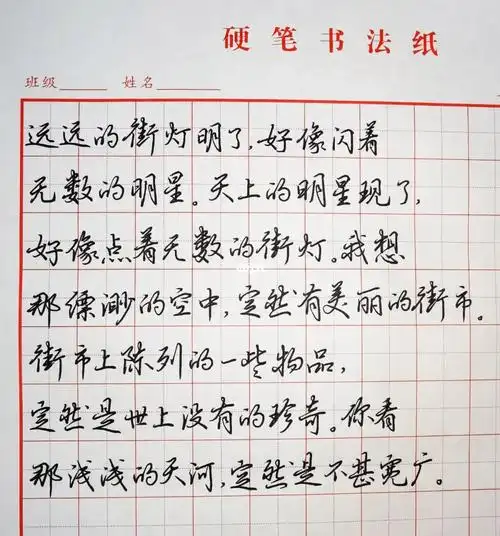 硬笔书法纸
班级 姓名
远远的街灯明了,好像闪着
无数的明星。天上的明星现了,
好像点着无数的街灯。我想
那缥渺的空中,定然有美丽的街市。
街市上陈列的一些物品,
定然是世上没有的珍奇。你看
那浅浅的天河,定然是不甚宽广。